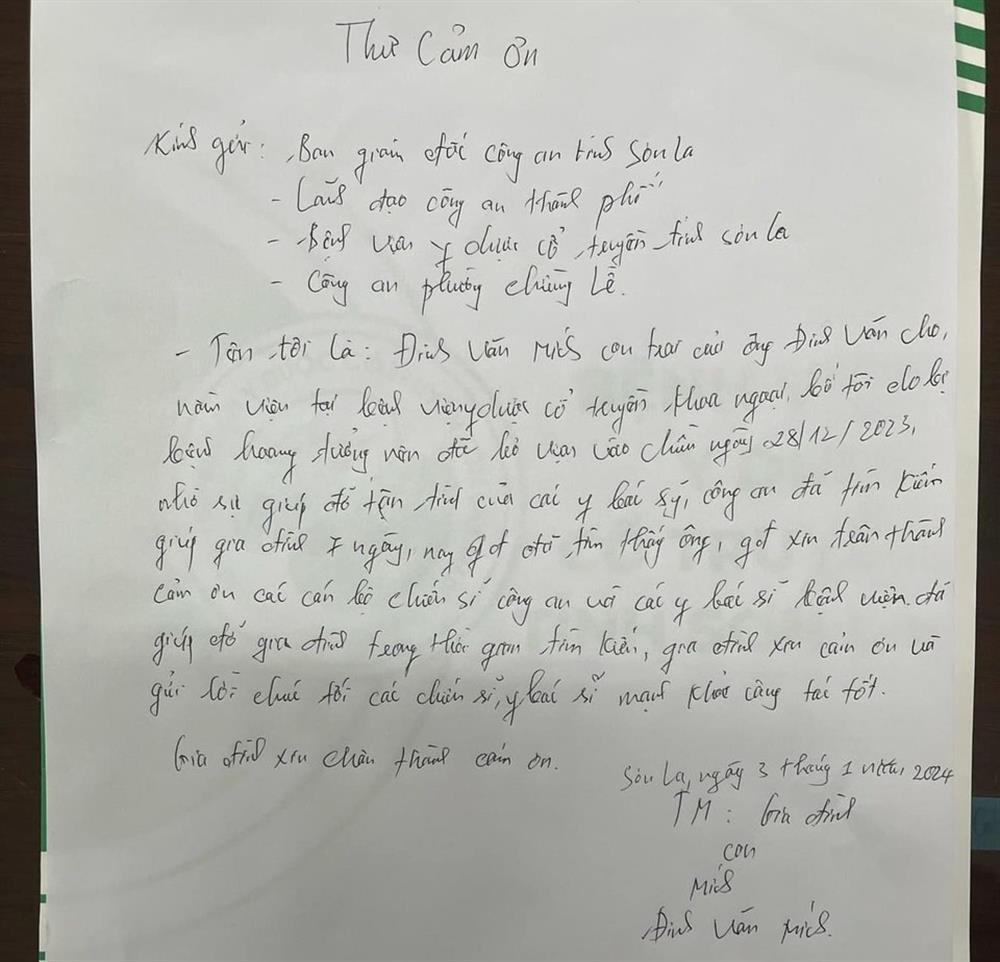 Thư Cảm ơn
Kính gửi: Ban giám đốc công an tỉnh Sơn la
- Lãnh đạo công an thành phố
- Bệnh viện y dược cổ truyền tỉnh Sơn la
- Công an phường chiềng Lề.
- Tên tôi là: Đinh Văn Mích con trai của ông Đinh Văn Cho,
nằm viện tại bệnh viện y dược cổ truyền khoa ngoại, bố tôi do bị
bệnh hoang tưởng nên đã bỏ viện vào chiều ngày 28/12/2023,
nhờ sự giúp đỡ tận tình của các y bác sỹ, công an đã tìm kiếm
giúp gia đình 7 ngày, nay gđ đã tìm thấy ông, gđ xin trân thành
cảm ơn các cán bộ chiến sĩ công an và các y bác sĩ bệnh viện đã
giúp đỡ gia đình trong thời gian tìm kiếm, gia đình xin cảm ơn và
gửi lời chúc tới các chiến sĩ, y bác sĩ mạnh khỏe công tác tốt.
Gia đình xin chân thành cảm ơn.
Sơn La, ngày 3 tháng 1 năm 2024
TM: Gia đình
con
Mích
Đinh Văn Mích.